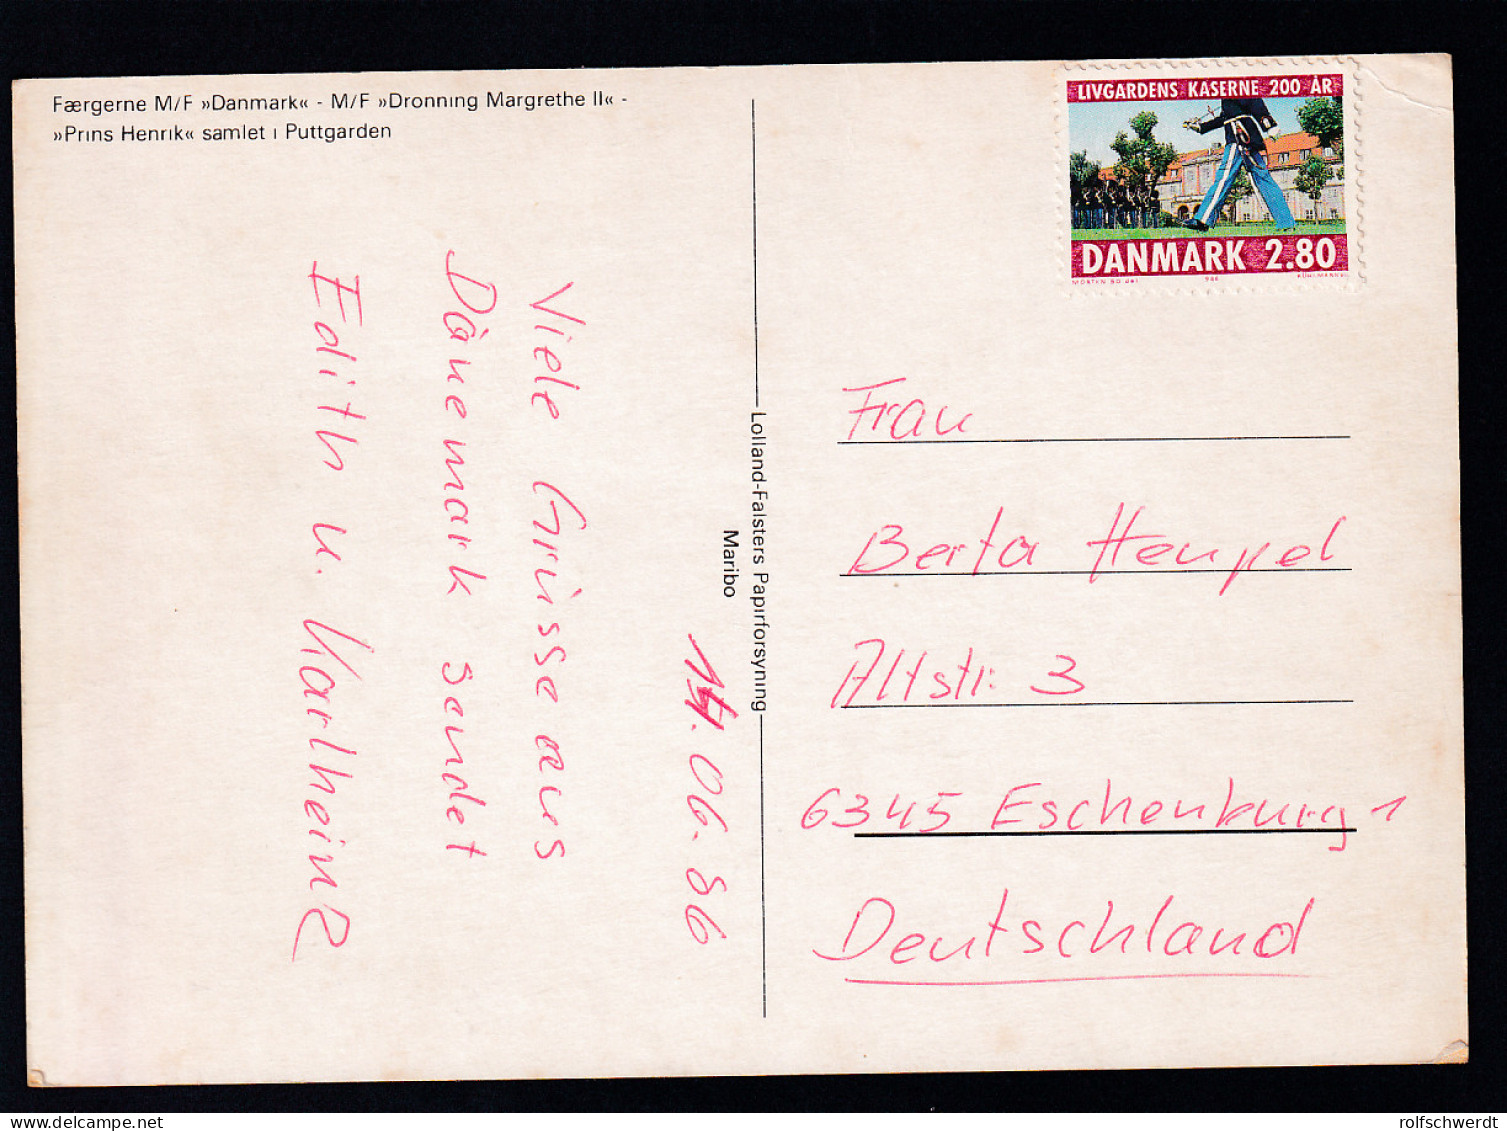 Færgerne M/F »Danmark« - M/F »Dronning Margrethe II« -
»Prins Henrik« samlet i Puttgarden
LIVGARDENS KASERNE 200 ÅR
DANMARK 2.80
Lolland-Falsters Papirforsyning
Maribo
06.86
Viele Grüsse aus
Dänemark sendet
Edith u. Karlheinz
Frau
Berta Hempel
Altstr. 3
6345 Eschenburg 1
Deutschland
rolfschwerdt